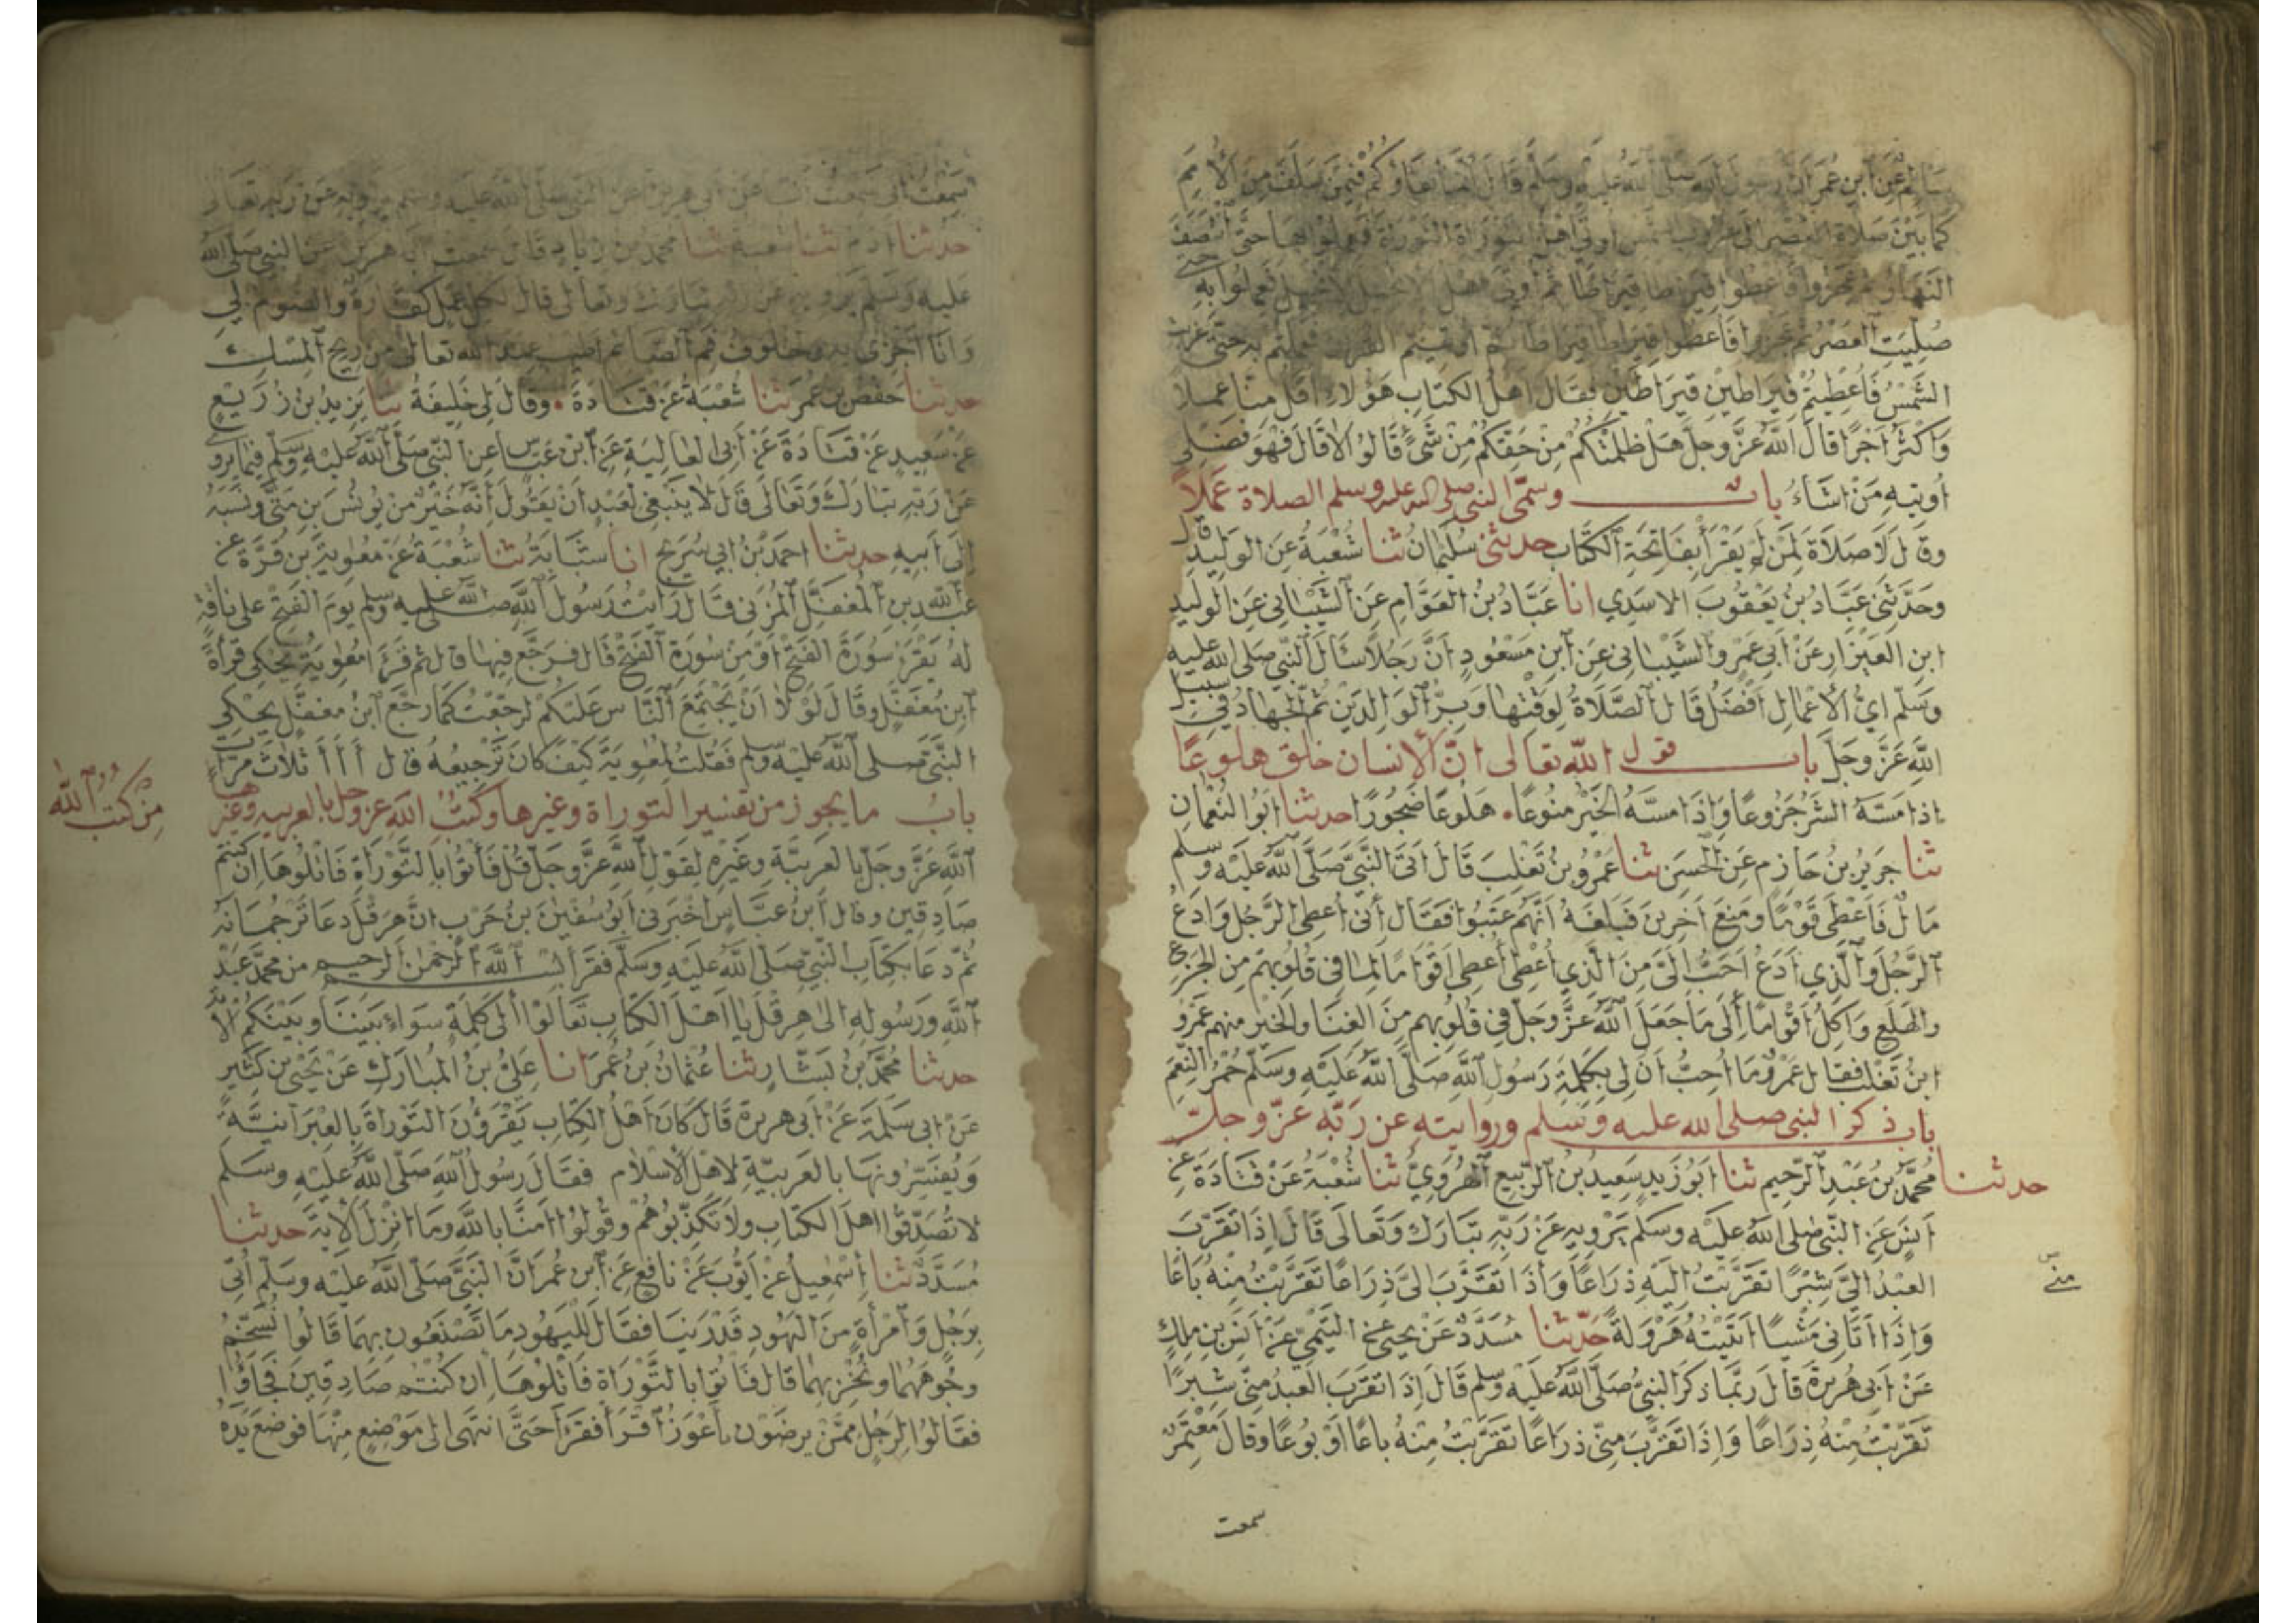 سالم عن ابن عمر ان رسول الله صلى الله عليه وسلم قال انما بقاؤكم فيمن سلف من الأمم
كما بين صلاة العصر الى غروب الشمس اوتي اهل التوراة التوراة فعملوا بها حتى انتصف
النهار ثم عجزوا فاعطوا قيراطا قيراطا ثم اوتي اهل الانجيل الانجيل فعملوا به حتى
صليت العصر ثم عجزوا فاعطوا قيراطا قيراطا ثم اوتيتم القرآن فعملتم به حتى غربت
الشمس فأعطيتم قيراطين قيراطين فقال اهل الكتاب هؤلاء اقل منا عملا
واكثر اجرا قال الله عز وجل هل ظلمتكم من حقكم من شئ قالوا لا قال فهو فضلى
أوتيه من اشاء باب وسمى النبي صلى الله عليه وسلم الصلاة عملا
وقال لا صلاة لمن لم يقرأ بفاتحة الكتاب حدثني سليمان ثنا شعبة عن الوليد قال
وحدثني عباد بن يعقوب الاسدي انا عباد بن العوام عن الشيباني عن الوليد
ابن العيزار عن أبي عمرو الشيباني عن ابن مسعود ان رجلا سأل النبي صلى الله عليه
وسلم اي الأعمال افضل قال الصلاة لوقتها وبر الوالدين ثم الجهاد في سبيل
الله عز وجل باب قول الله تعالى ان الإنسان خلق هلوعا
اذا مسه الشر جزوعا واذا مسه الخير منوعا • هلوعا ضجورا حدثنا ابو النعمان
ثنا جرير بن حازم عن الحسن ثنا عمرو بن تغلب قال اتى النبي صلى الله عليه وسلم
مال فأعطى قوما ومنع آخرين فبلغه انهم عتبوا فقال اني اعطي الرجل وادع
الرجل والذي ادع احب الي من الذي أعطي أعطي اقواما لما في قلوبهم من الجزع
والهلع واكل اقواما الى ما جعل الله عز وجل في قلوبهم من الغنا والخير منهم عمرو
ابن تغلب فقال عمرو ما احب ان لي بكلمة رسول الله صلى الله عليه وسلم حمر النعم
باب ذكر النبي صلى الله عليه وسلم وروايته عن ربه عز وجل
حدثنا محمد بن عبد الرحيم ثنا ابو زيد سعيد بن الربيع الهروي ثنا شعبة عن قتادة عن
انس عن النبي صلى الله عليه وسلم يرويه عن ربه تبارك وتعالى قال إذا تقرب
العبد الي شبرا تقربت اليه ذراعا واذا تقرب الي ذراعا تقربت منه باعا
منى
واذا اتاني مشيا اتيته هرولة حدثنا مسدد عن يحيى عن التيمي عن انس بن ملك
عن أبي هريرة قال ربما ذكر النبي صلى الله عليه وسلم قال إذا تقرب العبد مني شبرا
تقربت منه ذراعا وإذا تقرب مني ذراعا تقربت منه باعا او بوعا وقال معتمر
سمعت
سمعت ابي سمعت انسا عن ابي هريرة عن النبي صلى الله عليه وسلم يرويه عن ربه تعالى
حدثنا ادم ثنا شعبة ثنا محمد بن زياد قال سمعت ابا هريرة عن النبي صلى الله
عليه وسلم يرويه عن ربه تبارك وتعالى قال لكل عمل كفارة والصوم لي
وانا اجزي به ولخلوف فم الصائم اطيب عند الله تعالى من ريح المسك
حدثنا حفص بن عمر ثنا شعبة عن قتادة • وقال لي خليفة ثنا يزيد بن زريع
عن سعيد عن قتادة عن أبي العالية عن ابن عباس عن النبي صلى الله عليه وسلم فيما يروي
عن ربه تبارك وتعالى قال لا ينبغي لعبد ان يقول أنه خير من يونس بن متى ونسبه
الى ابيه حدثنا احمد بن ابي سريج انا شبابة ثنا شعبة عن معوية بن قرة عن
عبد الله بن المغفل المزني قال رايت رسول الله صلى الله عليه وسلم يوم الفتح على ناقة
له يقرأ سورة الفتح أو من سورة الفتح قال فرجع فيها قال ثم قرأ معوية يحكي قرأة
ابن مغفل وقال لولا ان يجتمع الناس عليكم لرجعت كما رجع ابن مغفل يحكي
النبي صلى الله عليه وسلم فقلت لمعوية كيف كان ترجيعه قال أ أ أ ثلاث مرات
باب ما يجوز من تفسير التوراة وغيرها وكتب الله عز وجل بالعربيه وغيرها
من كتب الله
الله عز وجل بالعربية وغيره لقول الله عز وجل قل فأتوا بالتوراة فاتلوها ان كنتم
صادقين وقال ابن عباس اخبرني ابو سفين بن حرب ان هرقل دعا ترجمانه
ثم دعا بكتاب النبي صلى الله عليه وسلم فقرأ بسم الله الرحمن الرحيم من محمد عبد
الله ورسوله الى هرقل يا اهل الكتاب تعالوا الى كلمة سواء بيننا وبينكم الآية
حدثنا محمد بن بشار ثنا عثمان بن عمر انا علي بن المبارك عن يحيى بن كثير
عن ابي سلمة عن أبي هريرة قال كان اهل الكتاب يقرؤن التوراة بالعبرانية
ويفسرونها بالعربية لاهل الاسلام فقال رسول الله صلى الله عليه وسلم
لا تصدقوا اهل الكتاب ولا تكذبوهم وقولوا امنا بالله وما انزل الآية حدثنا
مسدد ثنا إسمعيل عن ايوب عن نافع عن ابن عمر ان النبي صلى الله عليه وسلم أتي
برجل وامرأة من اليهود قد زنيا فقال لليهود ما تصنعون بهما قالوا نسخم
وجوههما ونخزيهما قال فأتوا بالتوراة فاتلوها ان كنتم صادقين فجاؤا
فقالوا لرجل ممن يرضون يا أعور اقرأ فقرأ حتى انتهى الى موضع منها فوضع يده